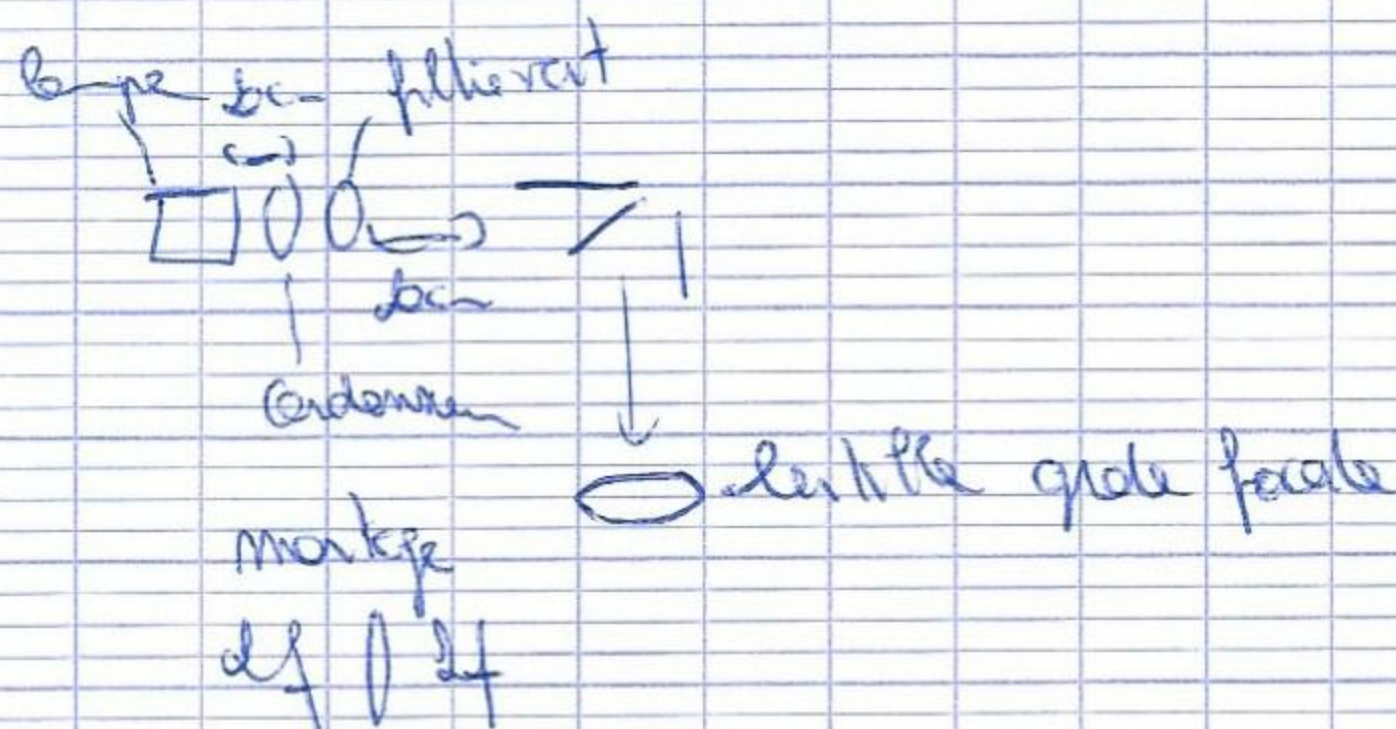 lampe filtre vert
Condenseur
lentille grde focale
montage
2f 2f